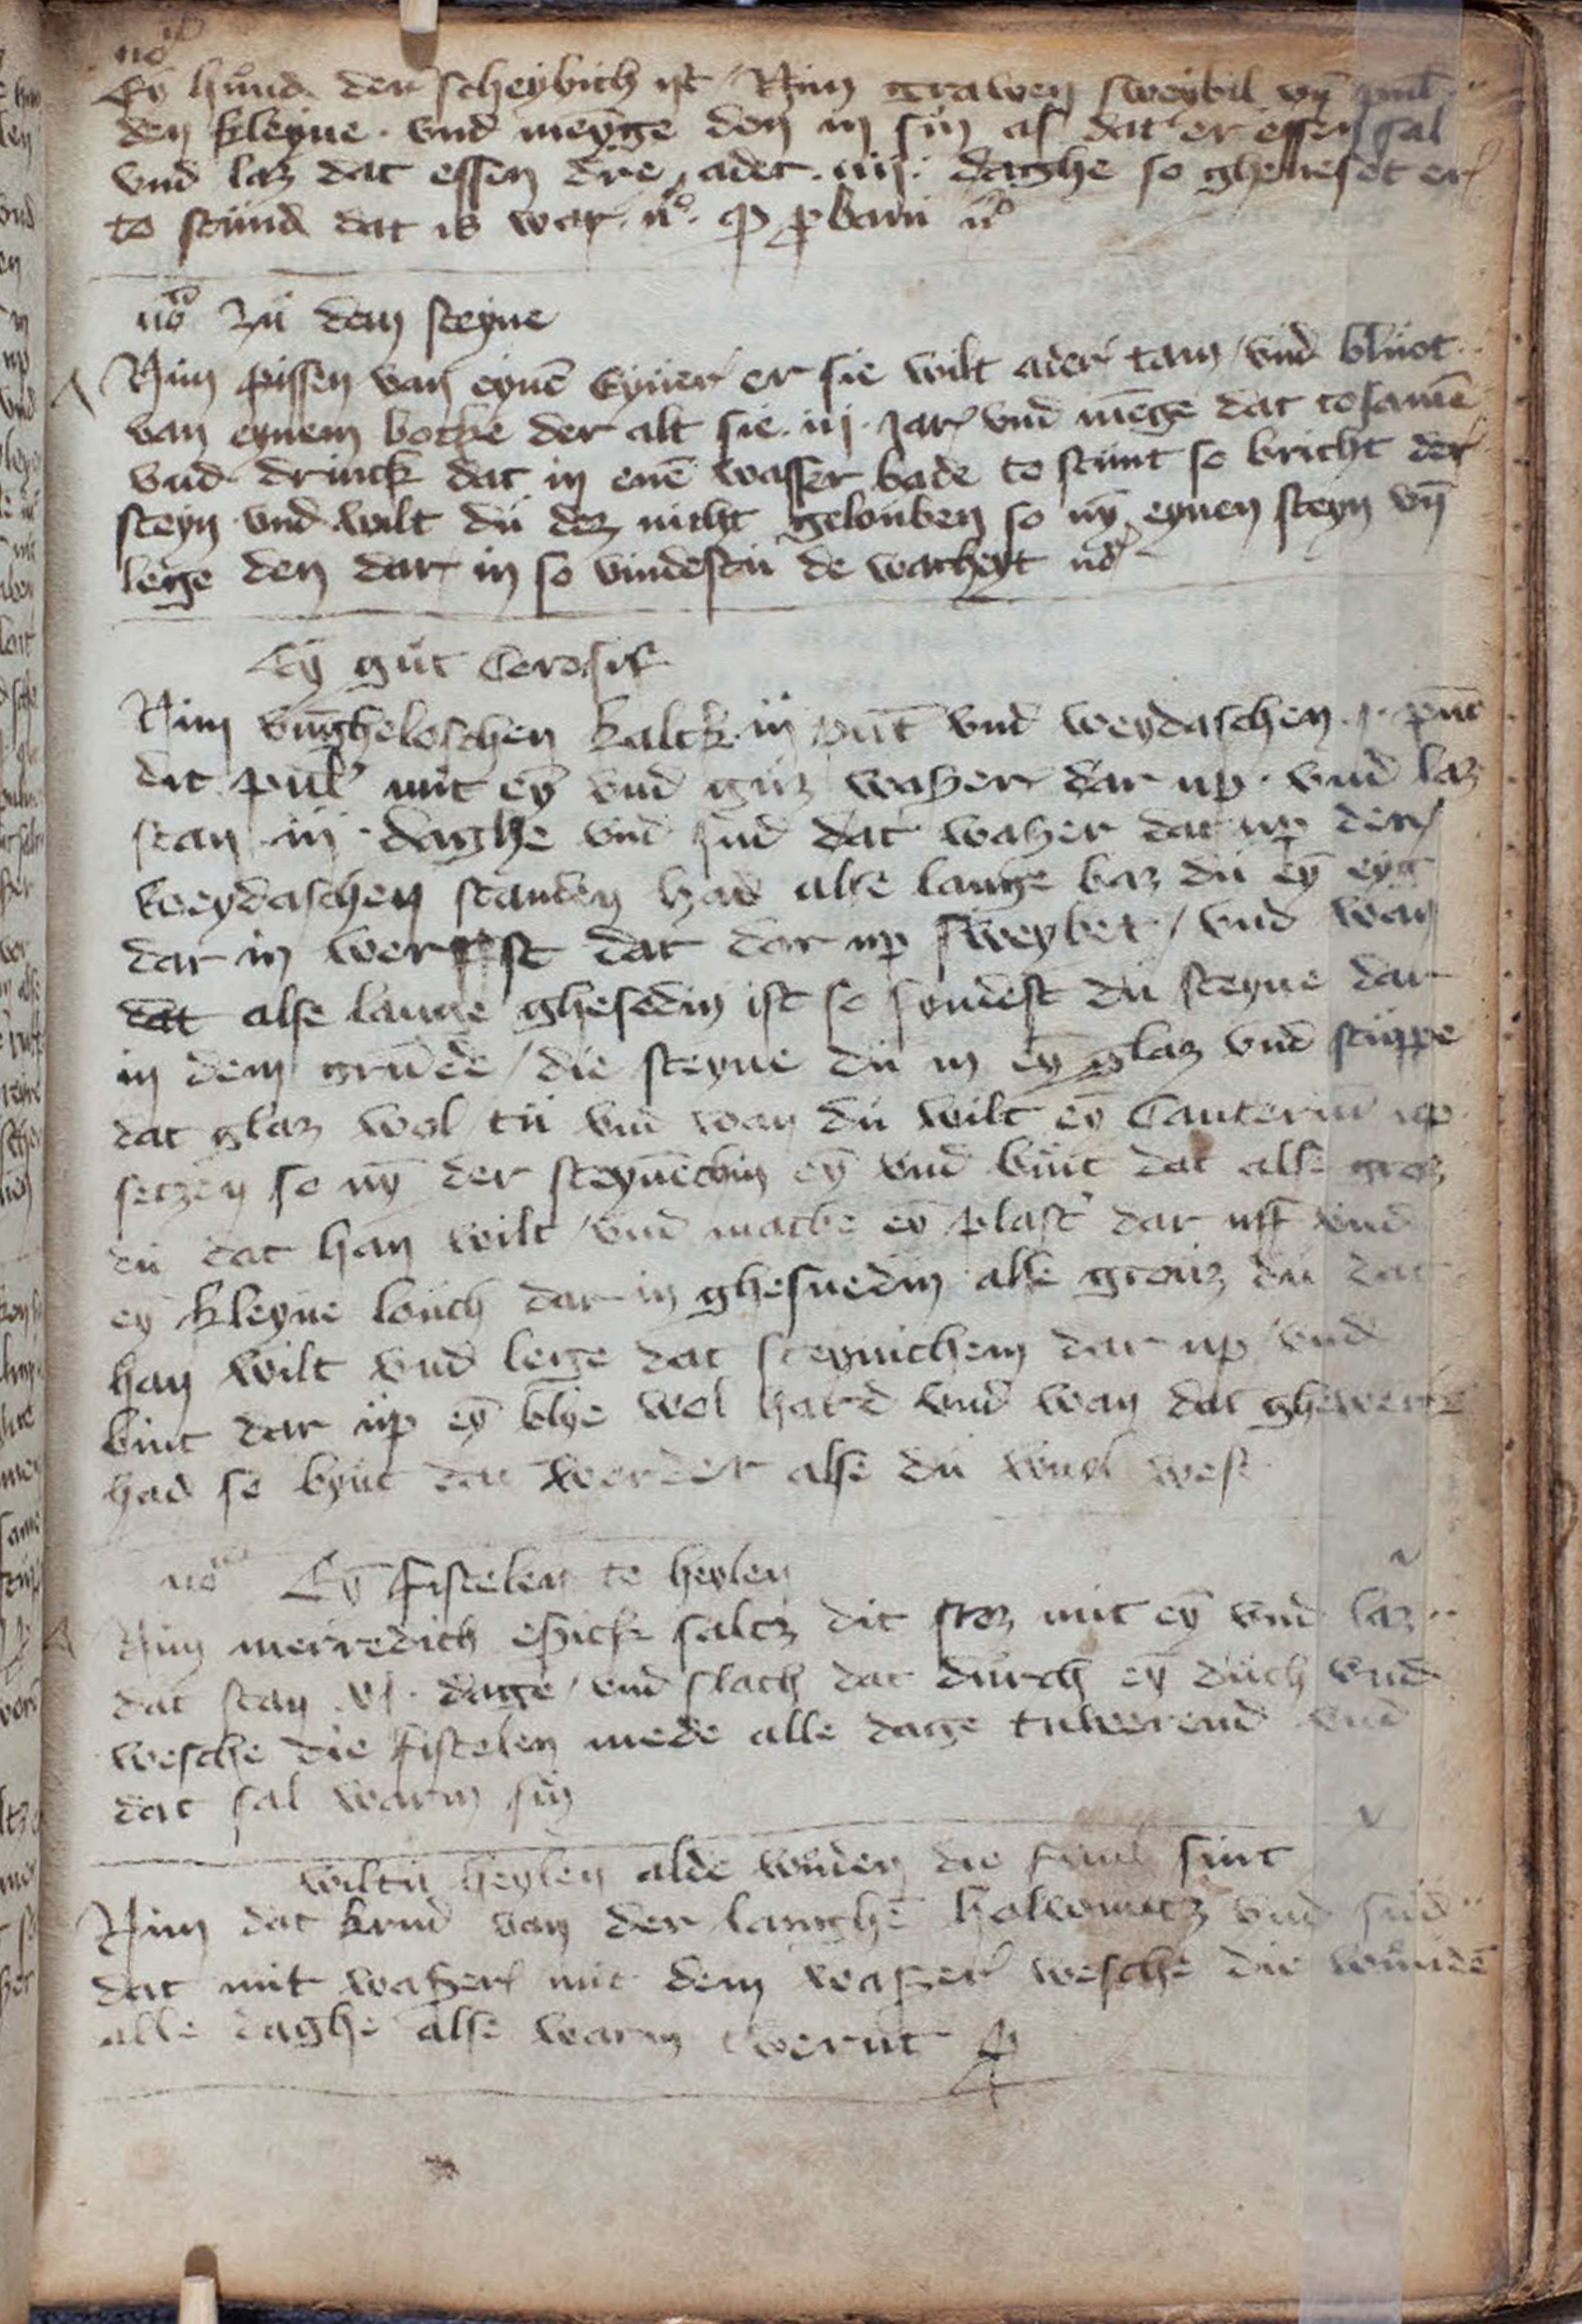 no
Ey hund der scheybich ist Nim grawen sweybil vn̄ pul
den kleyne · vnd meyge den in sin as dat er essen sal
vnd laz dat essen dre ader · iiij · daghe so gheneset er
to stund dat is war · no · probaui no
no Zu dem steyne
Nim pissen van eynē eyner er sie wilt ader tam vnd bluot
van eynem bocke der alt sie · iij · jar vnd mēge dat tosamē
vnd drinck dat in enē wasser bade to stunt so bricht der
steyn vnd wilt du dez nicht gelouben so nȳ eynen steyn vn̄
lege den dar in so vindestu de warheyt no
Eȳ gut Corosif
Nim vngheloschen kalck · iij punt vnd weydaschen · j · pūt
dit pul' mit eȳ vnd guz waszer dar up · vnd laz
stan · iij · daghe vnd sud dat waszer dat up den
weydaschen standen had alse lange baz du eȳ eyg
dar in werpst dat dar up sweybet / vnd wan
dat alse lange ghesodin ist so vindest du steyne dar
in dem grunde / die steyne du in eȳ glaz vnd stuppe
dat glaz wol tu vnd wan du wilt eȳ Cauterium up
setzen so nȳ der steynēchin eȳ vnd bint dat alse groz
du dat han wilt / vnd make eȳ plast' dar uff vnd
ey kleyne louch dar in ghesnedin alse grouz du dat
han wilt vnd lege dat steynichem dar up vnd
bint dar up eȳ blye wol hard vnd wan dat ghewerkt
had so bynt dat werder alse du wuol west
no Eȳ fistelen te heylen
Nim merredich epick saltz dit stoz mit eȳ vnd laz
dat stan · vj · dage / vnd slach dat durch eȳ duch vnd
wesche die fistelen mede alle dage tuwerend vnd
dat sal warm sin
wiltu heylen alde wunden die fuul sint
Nim dat krud van der langhē holwurtz vnd sud
dat mit waszer mit dem waszer wesche die wundē
alle daghe alse warm twerut